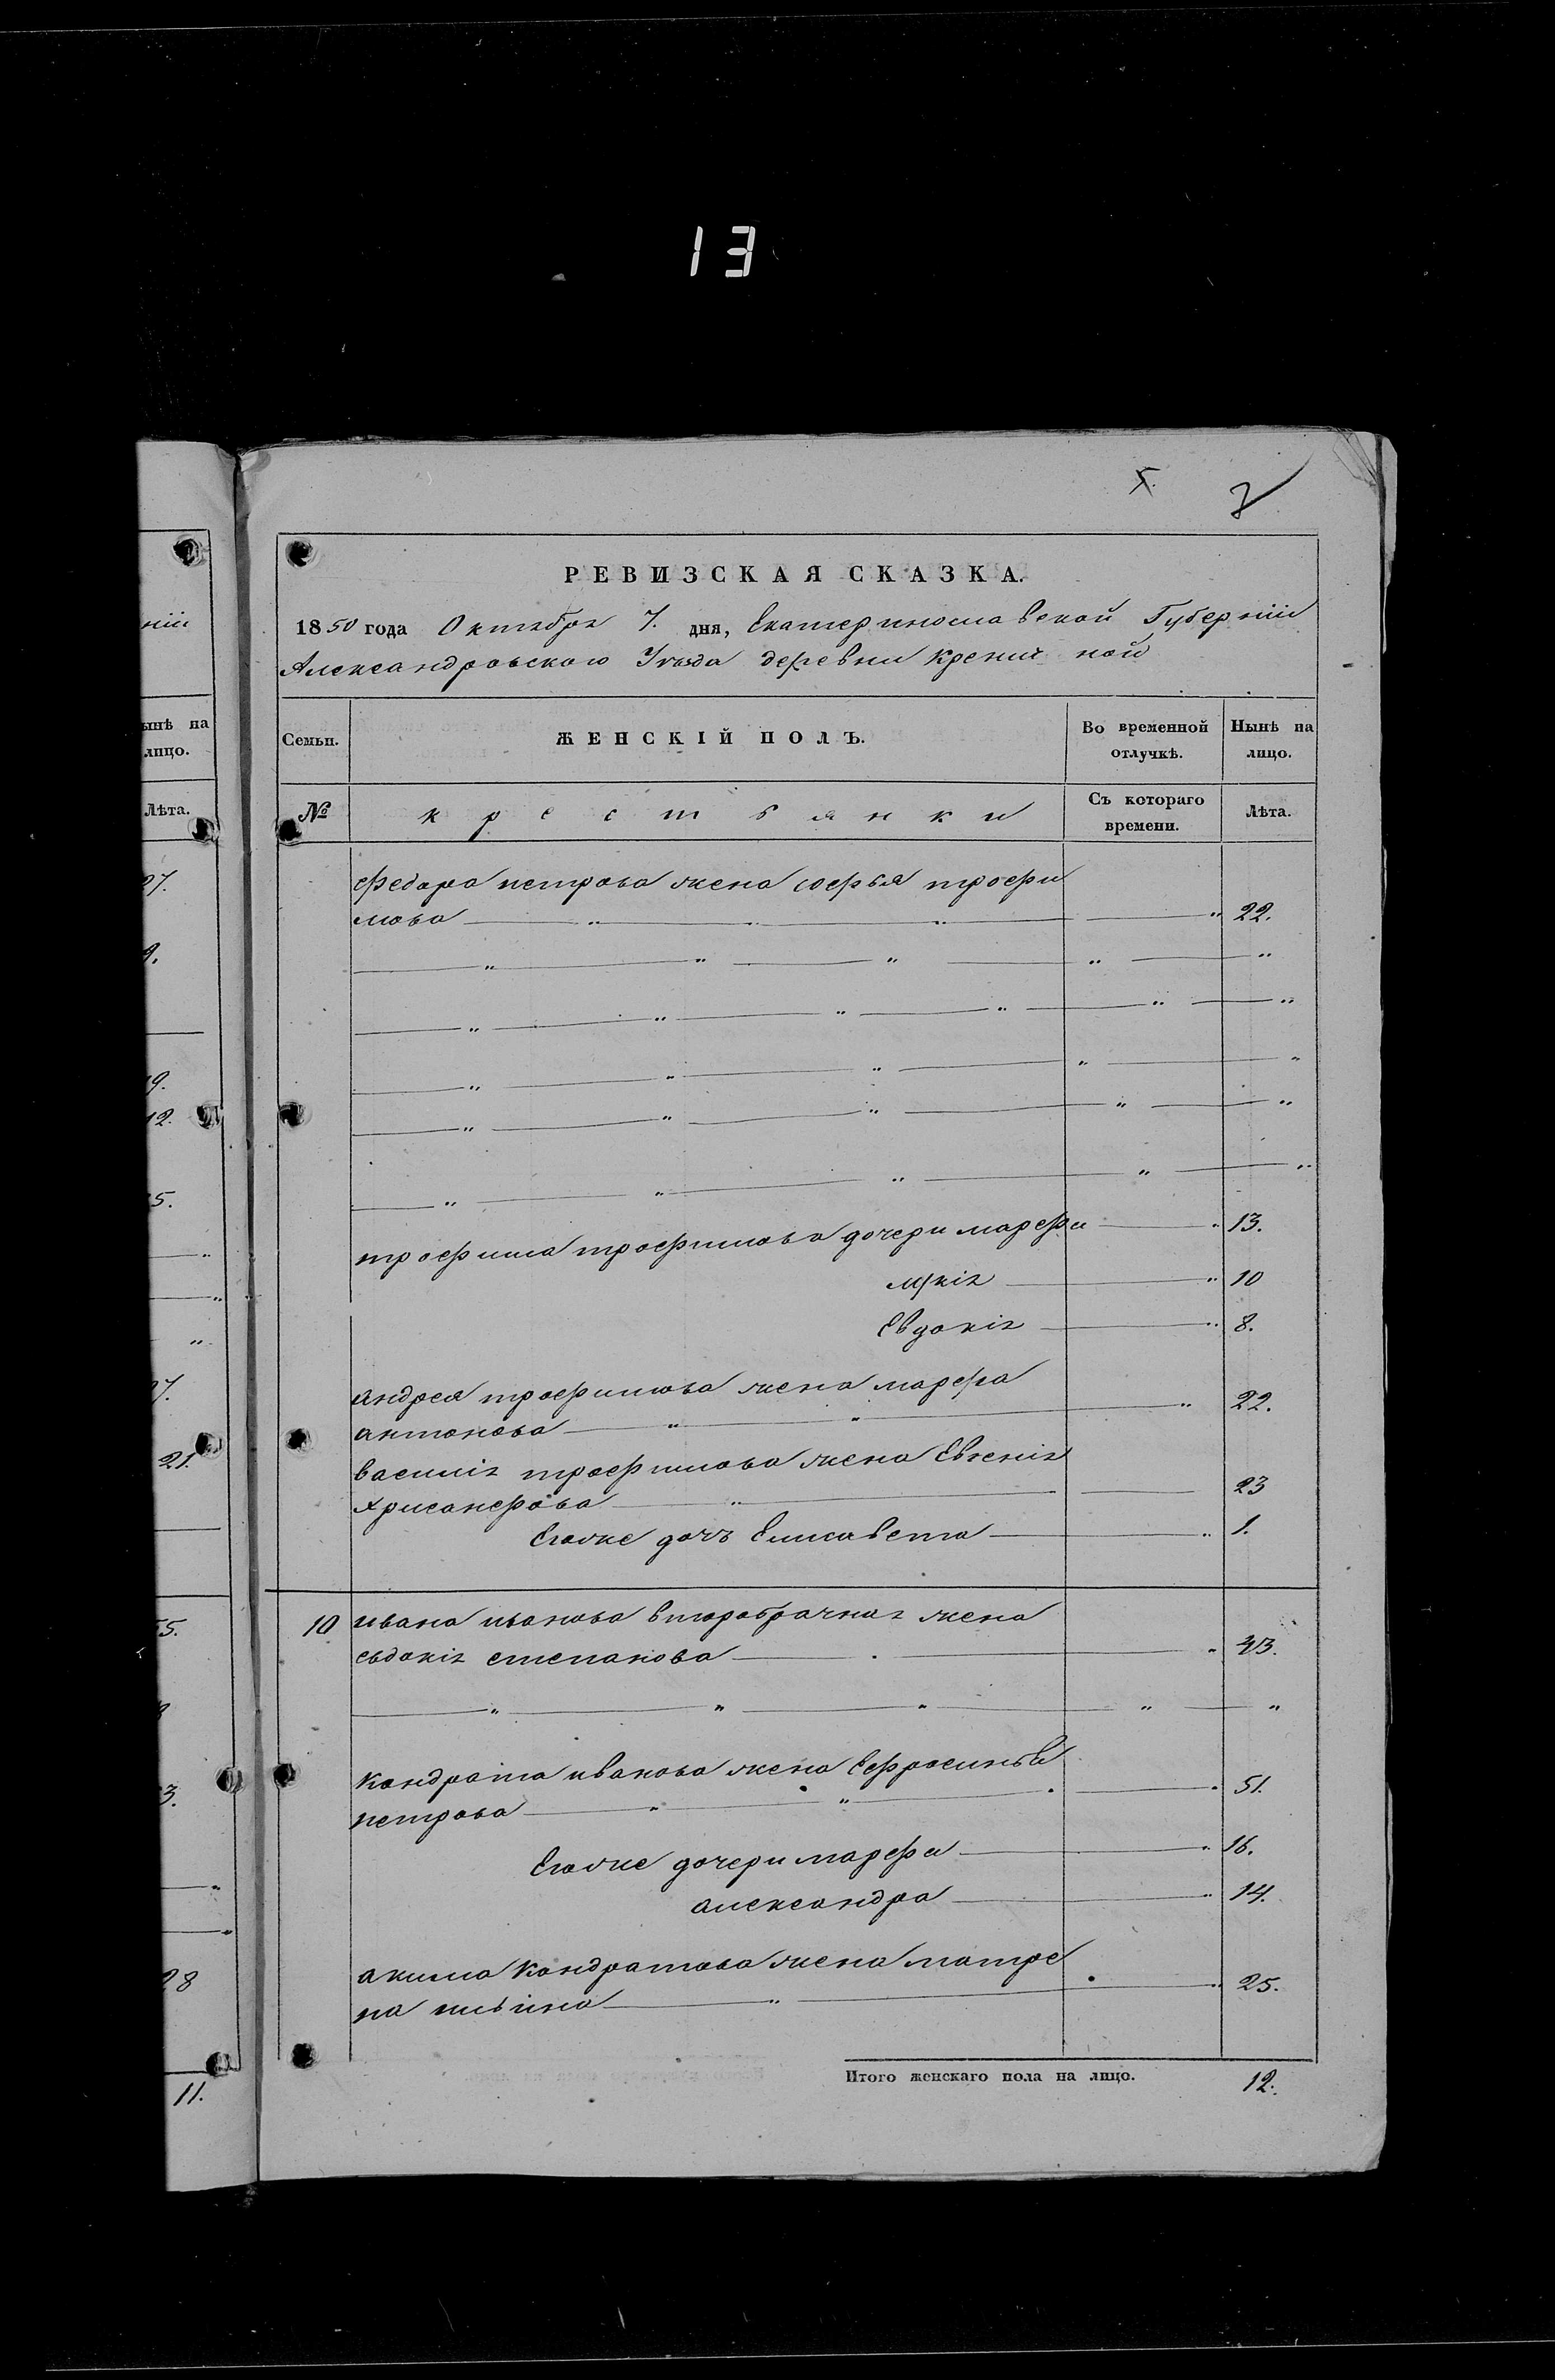 13
5.
7
РЕВИЗСКАЯ СКАЗКА.
1850 года Октября 7. дня, Екатеринославской Губерніи
Александровского Уѣзда деревни Кренич ной
Семьи.
ЖЕНСКІЙ ПОЛЪ.
Во временной отлучкѣ.
Нынѣ на лицо.
№
крестьянки
Съ котораго времени.
Лѣта.
Федора петрова жена софья трофи
мова 22.
трофима трофимова дочери марфа 13.
Евдокія 8.
андрея трофимова жена марфа
антонова 22.
василія трофимова жена Евгенія
Хрисанфова 23
Егоже дочъ Елисавета 1.
10 ивана иванова второбрачная жена
евдокія степанова 43.
Кондрата иванова жена Ефросинья
петрова 51.
Егоже дочери марфа 16.
александра 14.
акима Кондратова жена матре
на ильина 25.
Итого женскаго пола на лицо. 12.
ніи
ынѣ на
лицо.
Лѣта.
27.
9.
19.
12.
5.
7.
21.
55.
3.
28
11.